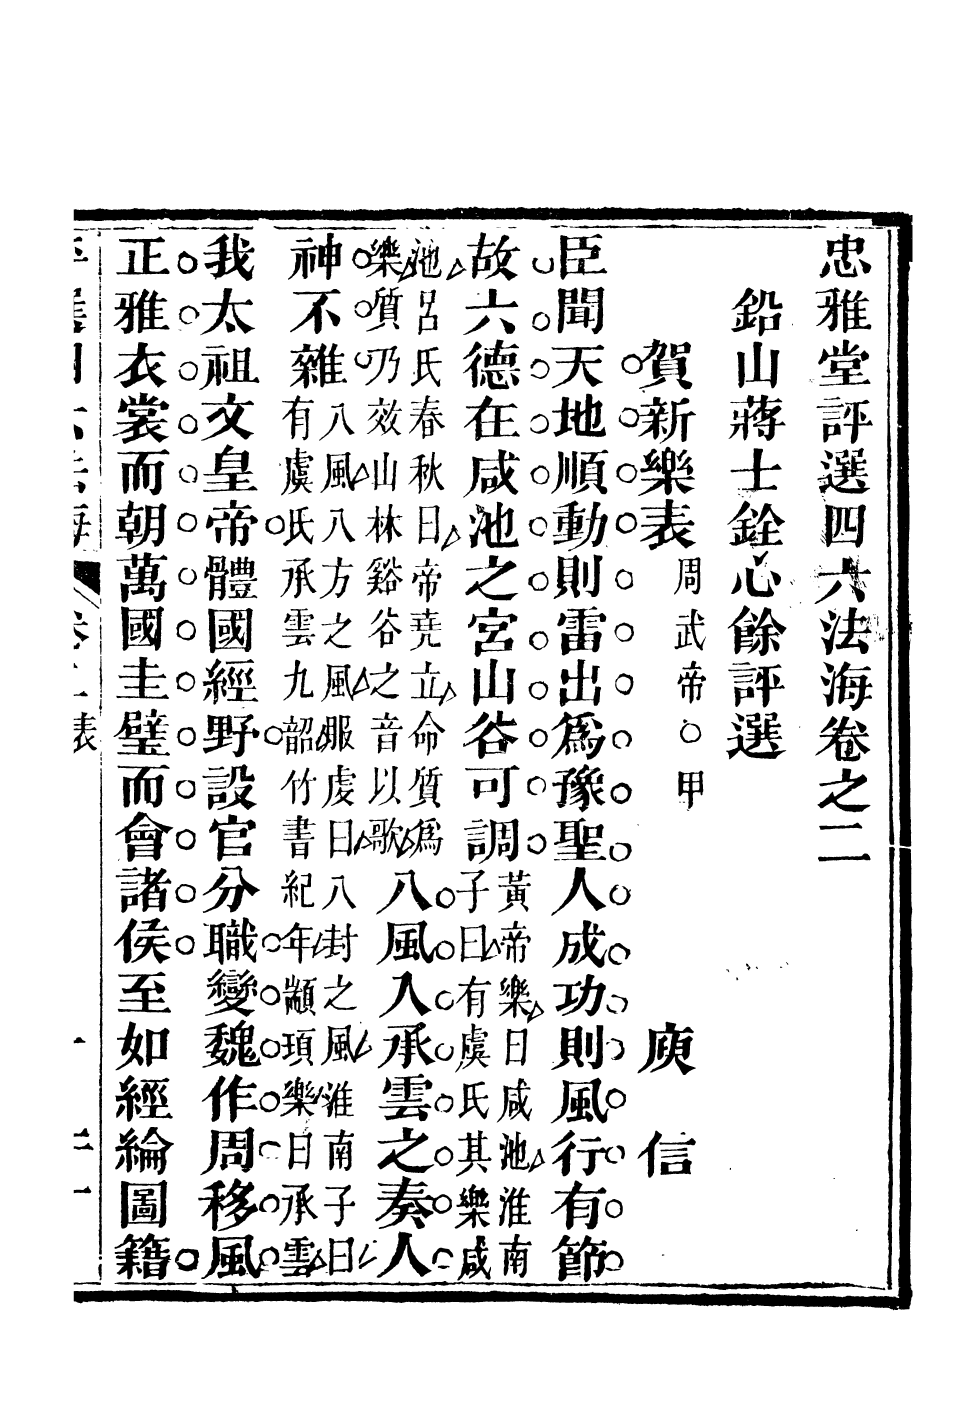 忠雅堂評選四六法海卷之二
鉛山蔣士銓心餘評選
賀新樂表周武帝○甲　庾信
臣聞天地順動則雷出爲豫聖人成功則風行有節
故六德在咸池之宮山谷可調黃帝樂曰咸池淮南
子曰有虞氏其樂咸
池呂氏春秋曰帝堯立命質爲
樂質乃效山林谿谷之音以歌八風入承雲之奏人
神不雜八風八方之風服虔曰八封之風淮南子曰
有虞氏承雲九韶竹書紀年顓頊樂曰承雲
我太祖文皇帝體國經野設官分職變魏作周移風
正雅衣裳而朝萬國圭璧而會諸侯至如經綸圖籍
卷二表